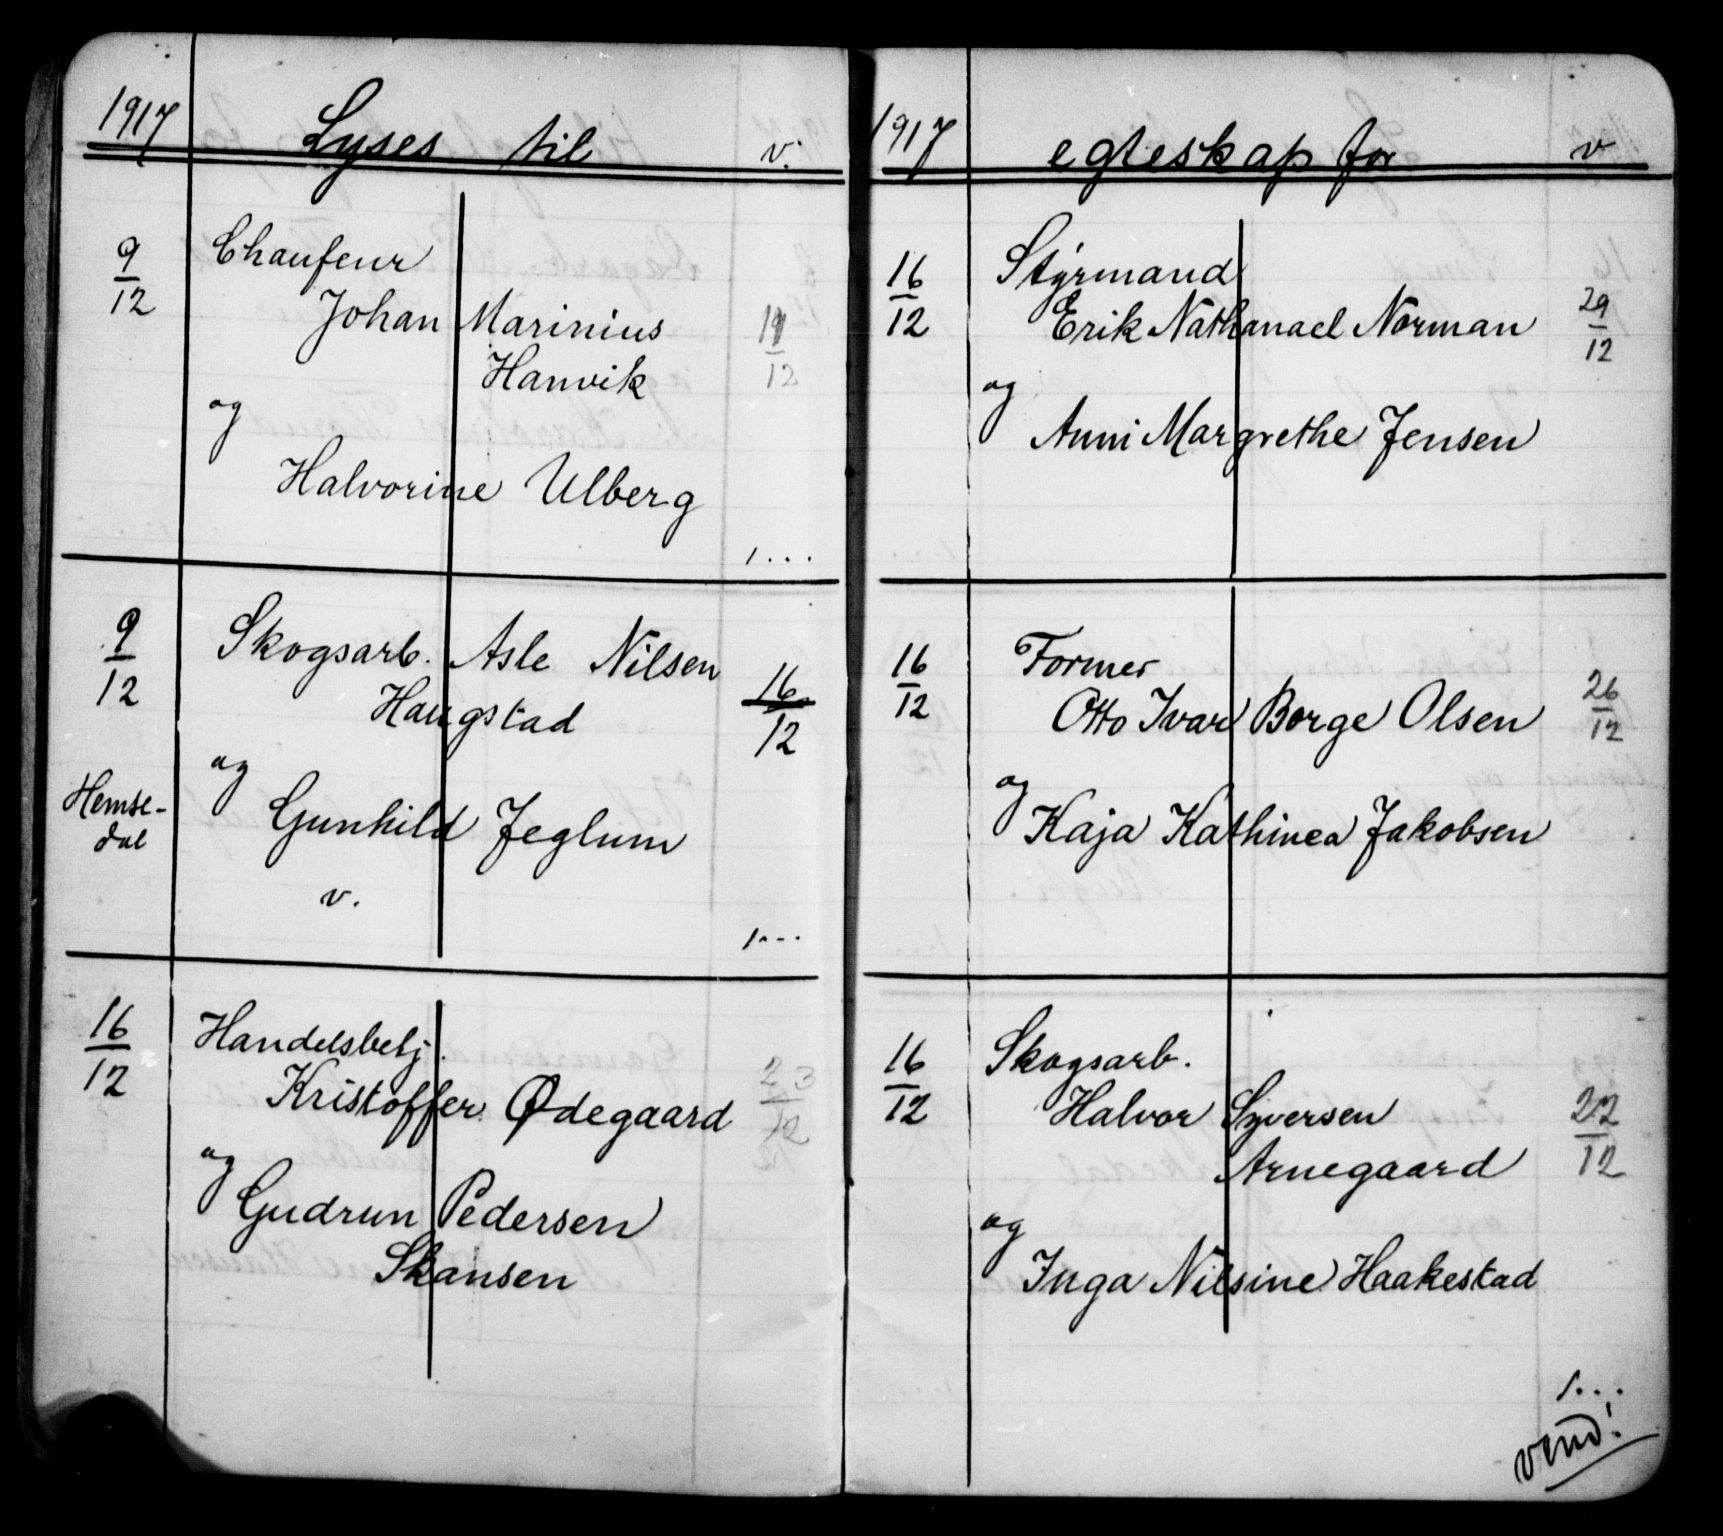 1917 Lyses til v.
9/12 Chaufeur
Johan Marinius 11/12
Hanvik
og
Halvorine Ulberg
1...
9/12 Skogsarb. Asle Nilsen 16/12
Haugstad
og
Hemse-
dal
Gunhild Jeglum
v.
1...
16/12 Handelsbetj.
Kristoffer Ødegaard 23/12
og
Gudrun Pedersen
Skansen
1917 egteskap for v
16/12 Styrmand
Erik Nathanael Norman 29/12
og
Anni Margrethe Jensen
16/12 Former
Otto Ivar Borge Olsen 26/12
og
Kaja Kathinea Jakobsen
16/12 Skogsarb.
Halvor Syversen 22/12
Arnegaard
og
Inga Nilsine Haakestad
1...
vend!